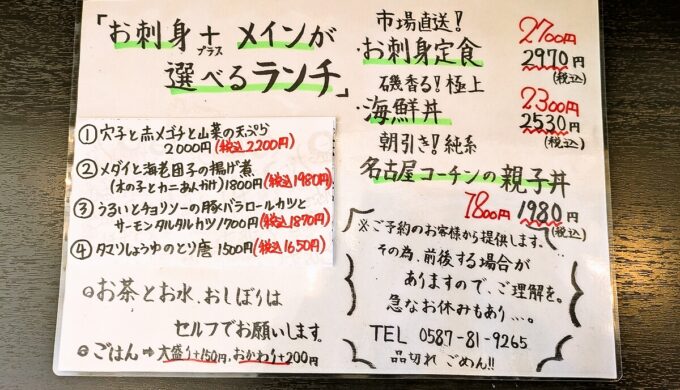 「お刺身＋メインが
プラス
選べるランチ」
①穴子と赤メゴチと山菜の天ぷら
2000円(税込2200円)
②メダイと海老団子の揚げ煮
(木の子とカニあんかけ)1800円(税込1980円)
③うるいとチョリソーの豚バラロールカツと
サーモンタルタルカツ1700円(税込1870円)
④タマリしょうゆのとり唐1500円(税込1650円)
◎お茶とお水、おしぼりは
セルフでお願いします。
◎ごはん⇒大盛り+150円、おかわり+200円
市場直送!
・お刺身定食
2700円
2970円
(税込)
磯香る!極上
・海鮮丼
2300円
2530円
(税込)
朝引き!純系
名古屋コーチンの親子丼
1800円
1980円
(税込)
※ご予約のお客様から提供します。
その為、前後する場合が
ありますので、ご理解を。
急なお休みもあり…。
TEL 0587-81-9265
品切れごめん!!